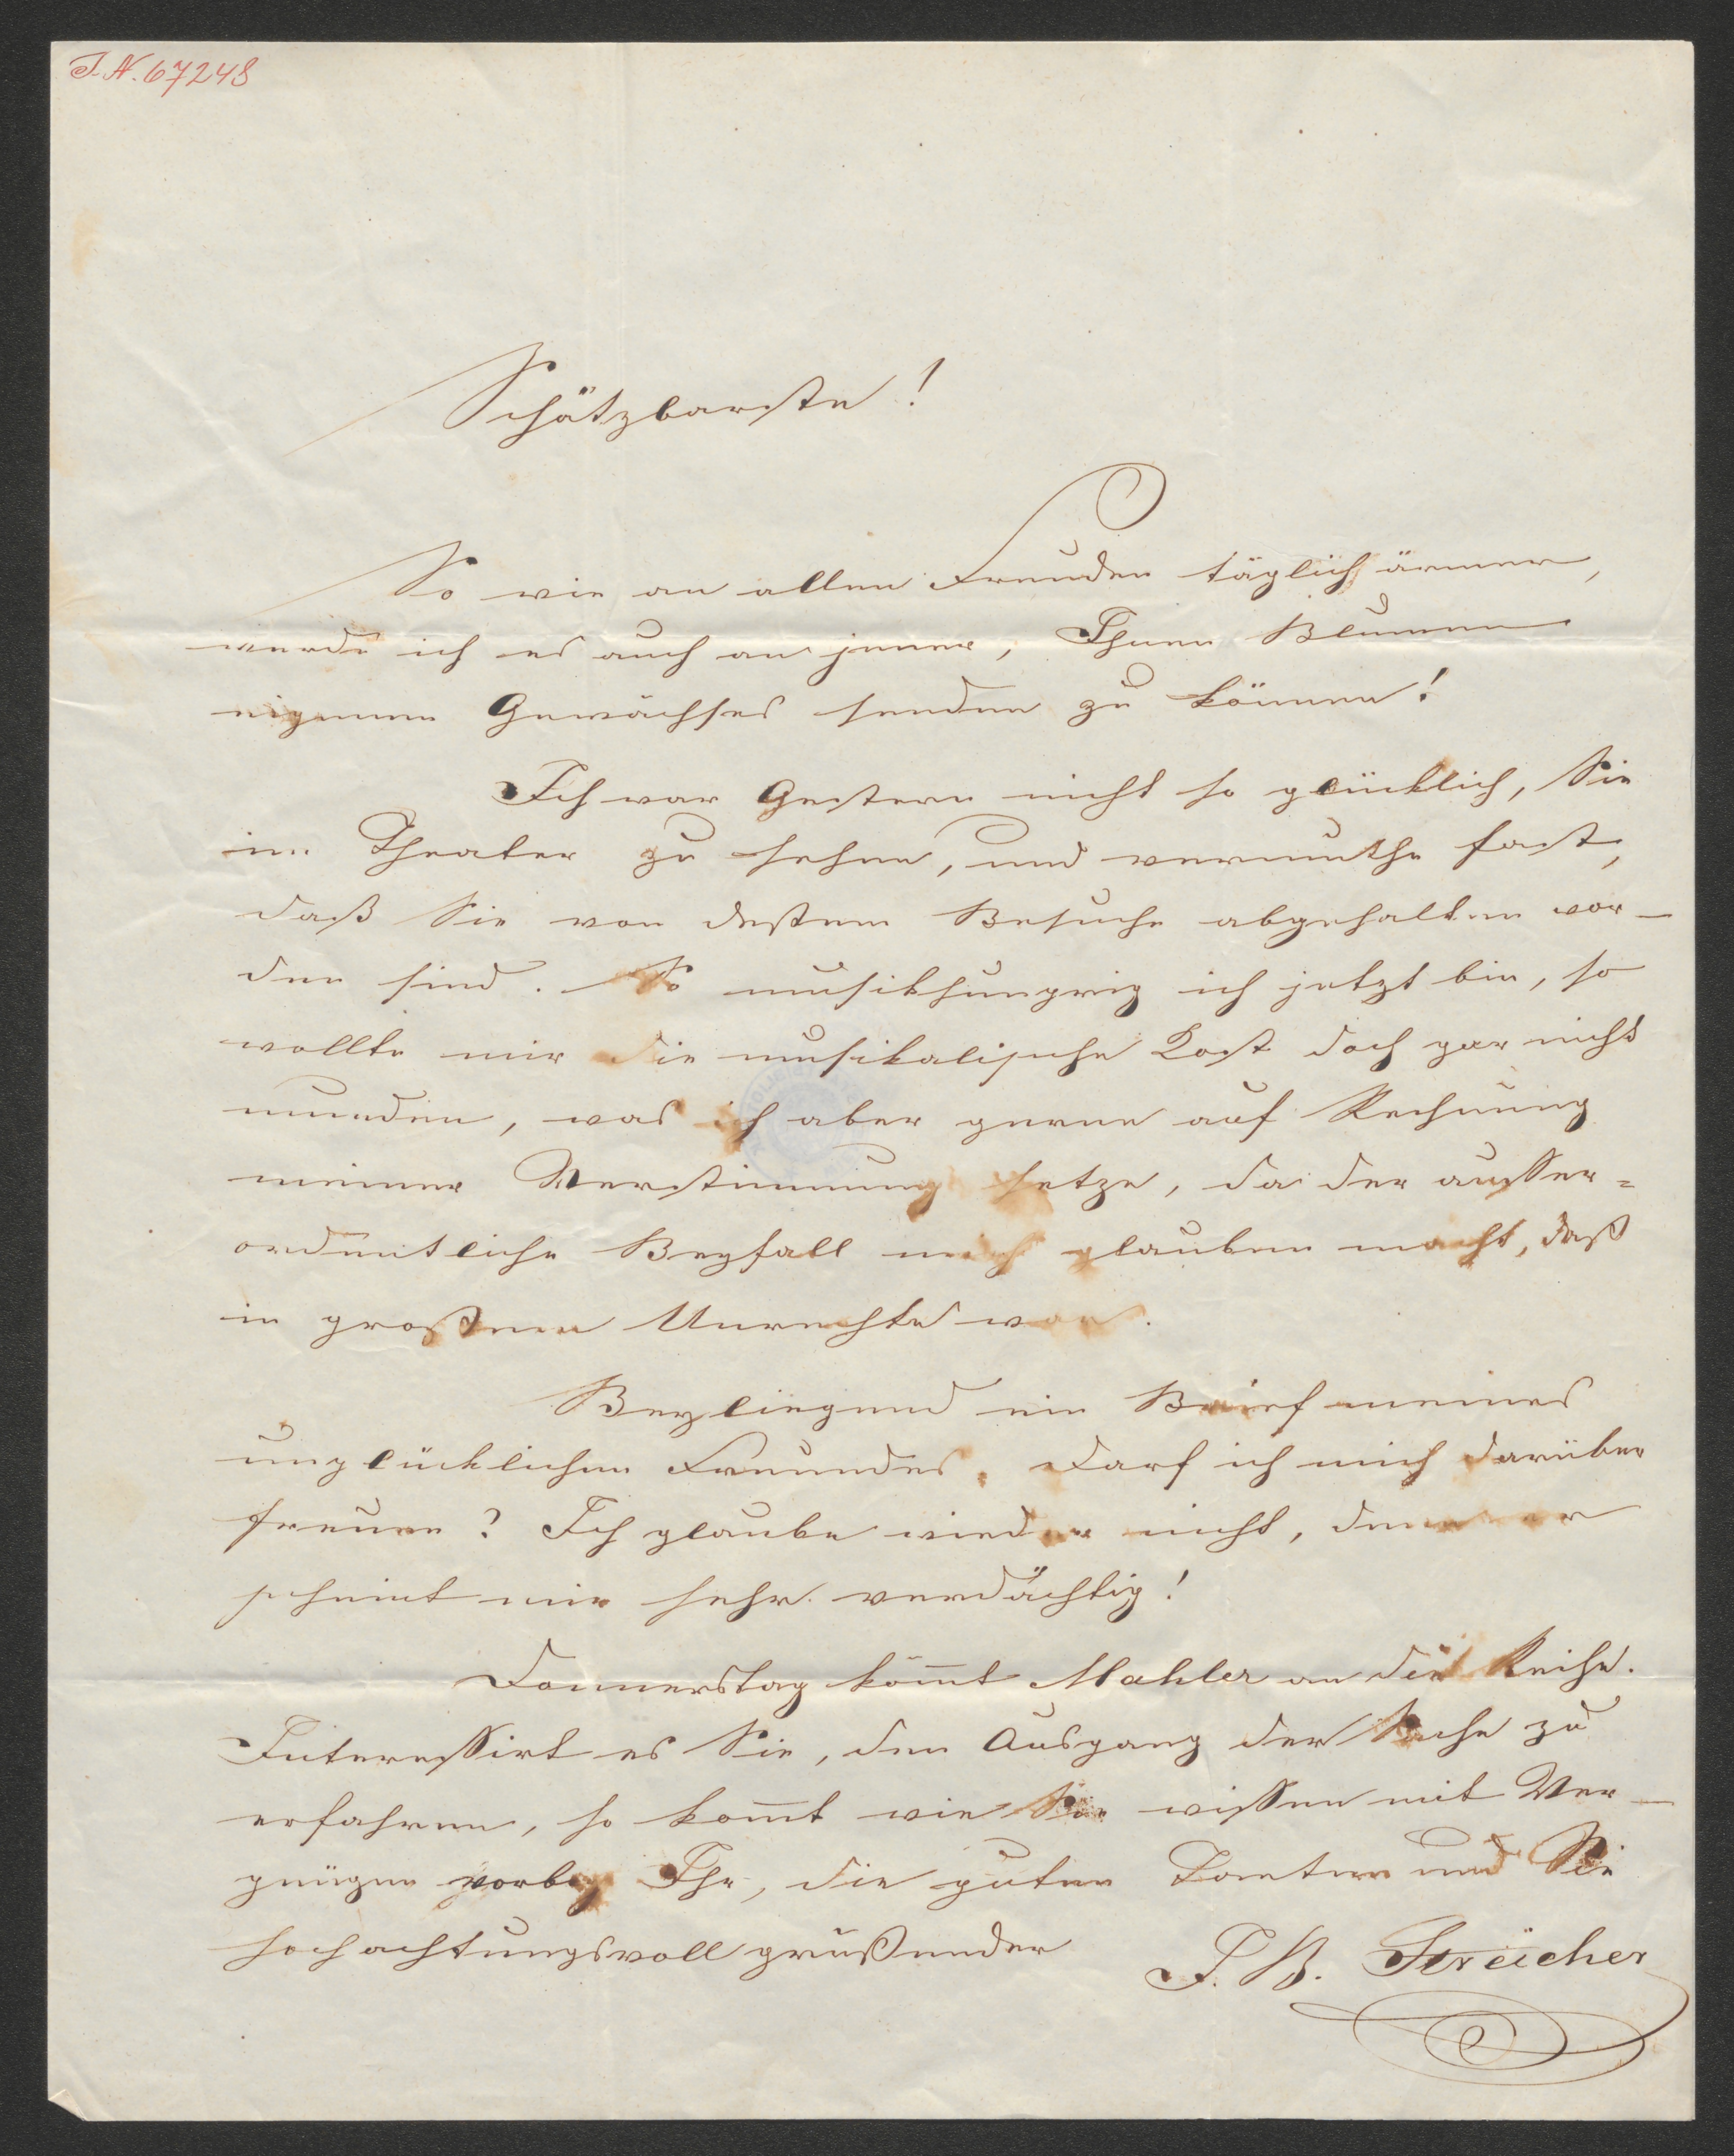 I.N. 67248
Schätzbarste!
So wie an allen Freuden täglich ärmer,
werde ich es auch an jener, Ihnen Blumen
eigenen Gewächses senden zu können!
Ich war Gestern nicht so glücklich, Sie
im Theater zu sehen, und vermuthe fast,
daß Sie von dessen Besuche abgehalten wor-
den sind. So musikhungrig ich jetzt bin, so
wollte mir die musikalische Kost doch gar nicht
munden, was ich aber gerne auf Rechnung
meiner Verstimmung setze, da der ausser=
ordentliche Beyfall mich glauben macht, daß
in großem Unrechte war.
Beyliegend ein Brief meines
unglücklichen Freundes. Darf ich mich darüber
freuen? Ich glaube wieder nicht, denn er
scheint mir sehr verdächtig!
Donnerstag kom̄t Mahler an die Reihe.
Interessirt es Sie, den Ausgang der Sache zu
erfahren, so kom̄t wie Sie wissen mit Ver-
gnügen vorbey Ihr, die guten Tanten und Sie
hochachtungsvoll grüßender
J. B. Streicher